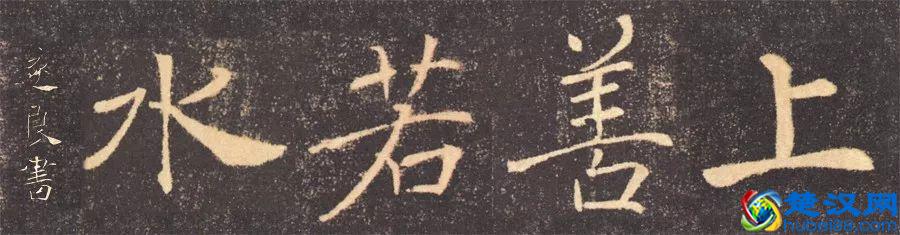 上善若水
遂良書
楚汉网